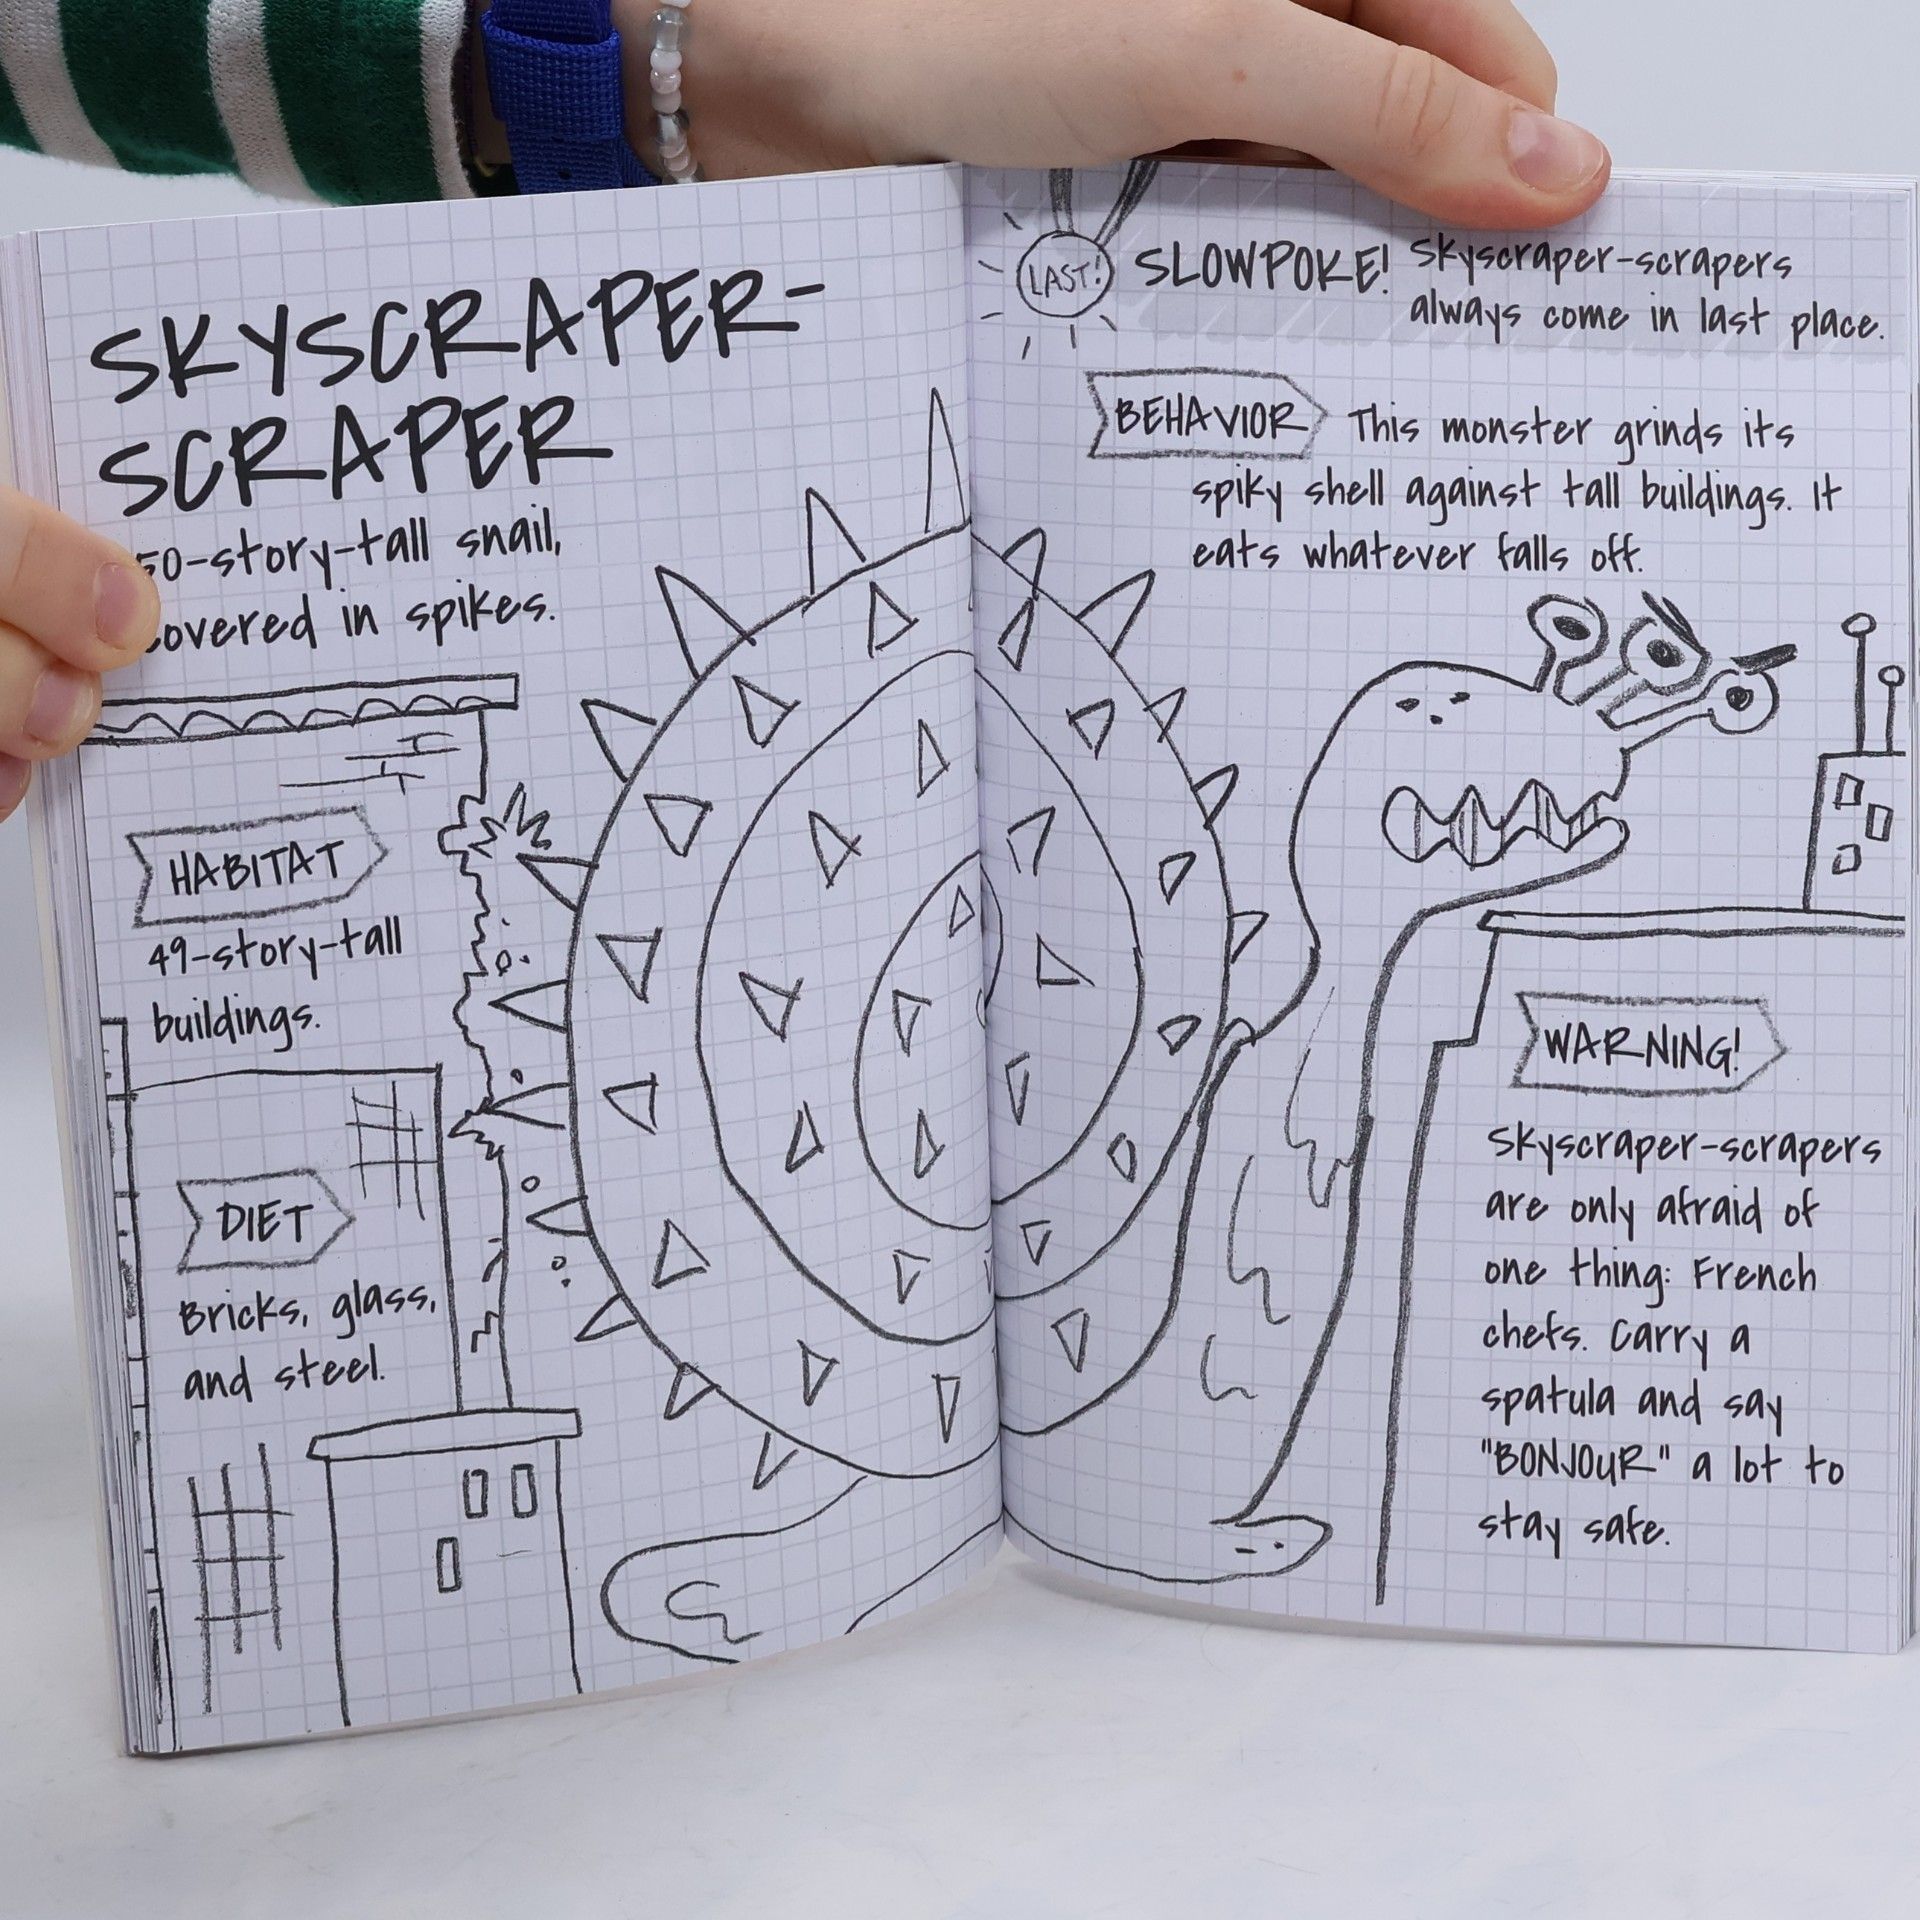 SKYSCRAPER-
SCRAPER
50-story-tall snail,
covered in spikes.
HABITAT
49-story-tall
buildings.
DIET
Bricks, glass,
and steel.
LAST!
SLOWPOKE! Skyscraper-scrapers
always come in last place.
BEHAVIOR This monster grinds its
spiky shell against tall buildings. It
eats whatever falls off.
WARNING!
Skyscraper-scrapers
are only afraid of
one thing: French
chefs. Carry a
spatula and say
"BONJOUR" a lot to
stay safe.